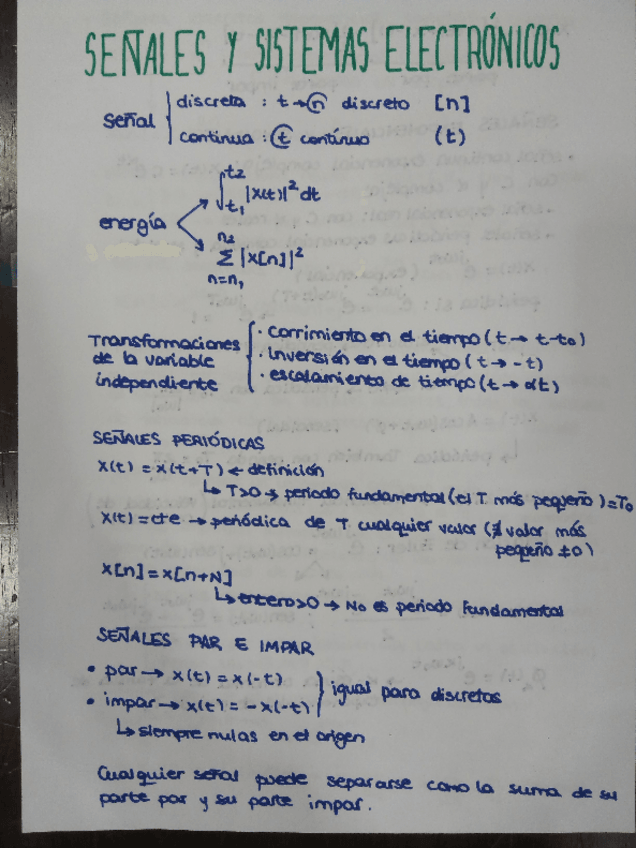 SEÑALES Y SISTEMAS ELECTRÓNICOS
señal { discreta : t → n discreto [n]
continua : t contínuo (t)
energía ∫ t2 t1 |x(t)|² dt
n2 Σ n=n1 |x[n]|²
Transformaciones de la variable independiente { · corrimiento en el tiempo (t → t-t0)
· inversión en el tiempo (t → -t)
· escalamiento de tiempo (t → αt)
SEÑALES PERIÓDICAS
x(t) = x(t+T) ← definición
↳ T>0 → periodo fundamental (el T más pequeño) = T0
x(t) = cte → periódica de T cualquier valor (∄ valor más
pequeño ≠0)
x[n] = x[n+N]
↳ entero>0 → N0 es periodo fundamental
SEÑALES PAR E IMPAR
• par → x(t) = x(-t)
• impar → x(t) = -x(-t) } igual para discretas
↳ siempre nulas en el origen
Cualquier señal puede separarse como la suma de su
parte par y su parte impar.